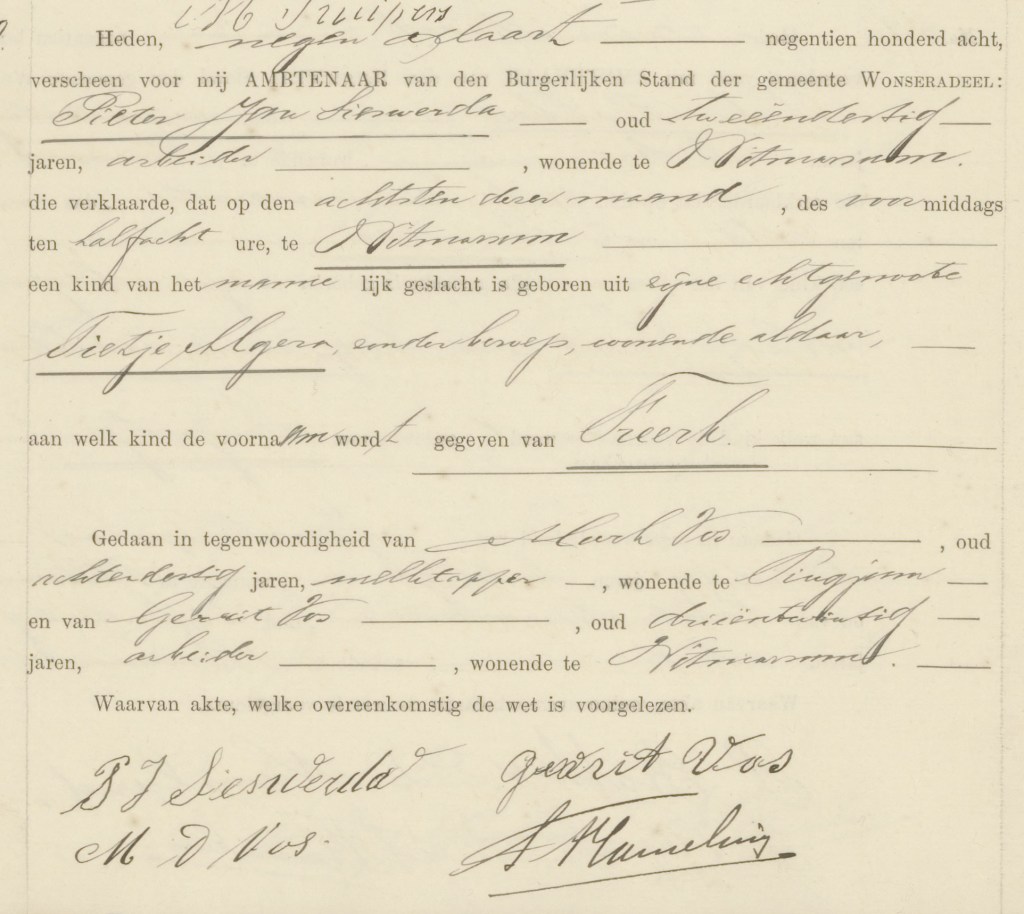 M Kuipers
Heden, negen Maart negentien honderd acht,
verscheen voor mij AMBTENAAR van den Burgerlijken Stand der gemeente WONSERADEEL:
Pieter Jan Sieswerda oud tweeëndertig
jaren, arbeider, wonende te Witmarsum.
die verklaarde, dat op den achtsten dezer maand, des voormiddags
ten halfacht ure, te Witmarsum
een kind van het mannelijk geslacht is geboren uit zijne echtgenoote
Tietje Algera, zonder beroep, wonende aldaar,
aan welk kind de voornaam wordt gegeven van Freerk.
Gedaan in tegenwoordigheid van Mark Vos, oud
achtendertig jaren, melktapper, wonende te Pingjum
en van Gerrit Vos, oud drieëntwintig
jaren, arbeider, wonende te Witmarsum.
Waarvan akte, welke overeenkomstig de wet is voorgelezen.
P J Sieswerda Gerrit Vos
M D Vos.